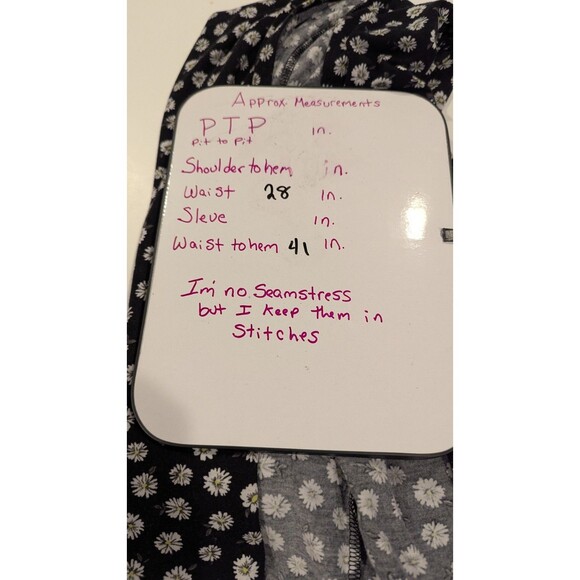 Approx Measurements
PTP in.
Pit to Pit
Shoulder to hem in.
Waist 28 in.
Sleve in.
Waist to hem 41 in.
I'm no Seamstress
but I keep them in
Stitches